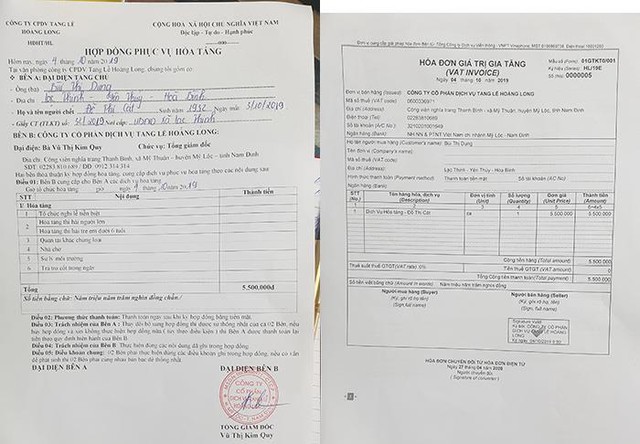 CÔNG TY CPDV TANG LỄ
HOÀNG LONG
HĐHT/HL
CỘNG HÒA XÃ HỘI CHỦ NGHĨA VIỆT NAM
Độc lập - Tự do - Hạnh phúc
HỢP ĐỒNG PHỤC VỤ HỎA TÁNG
Hôm nay, 4/10/2019
Tại văn phòng công ty CPDV Tang Lễ Hoàng Long, chúng tôi gồm có:
BÊN A: ĐẠI DIỆN TANG CHỦ
- Ông (bà) Bùi Thị Dung
- Địa chỉ Lạc Thịnh - Yên Thủy - Hòa Bình
- Họ và tên người chết Đỗ Thị Cát Sinh năm 1932 Ngày mất 3/10/2019
- Giấy CT (TTAT) số 51/2019 Nơi cấp UBND xã Lạc Thịnh
BÊN B: CÔNG TY CỔ PHẦN DỊCH VỤ TANG LỄ HOÀNG LONG:
Đại diện: Bà Vũ Thị Kim Quy Chức vụ: Tổng giám đốc
Địa chỉ: Công viên nghĩa trang Thanh Bình, xã Mỹ Thuận - huyện Mỹ Lộc - tỉnh Nam Định
SĐT: 02283.810.689 / DĐ: 0912.314.314
Hai bên thỏa thuận ký hợp đồng hỏa táng, cung cấp dịch vụ phục vụ hỏa táng theo các nội dung sau
Điều 01: Bên B cung cấp cho Bên A các dịch vụ hỏa táng
Giờ tổ chức hỏa táng giờ ngày 4/10/2019
STT Nội dung Thành tiền
I/ Hỏa táng
1 Tổ chức nghi lễ tiễn biệt
2 Hỏa táng thi hài người lớn
Hỏa táng thi hài trẻ em dưới 6 tuổi
3 Quan tài khác chủng loại
4 Nhà chờ
5 Xử lý môi trường
6 Trả tro cốt trong ngày
Tổng 5.500.000đ
Số tiền bằng chữ: Năm triệu năm trăm nghìn đồng chẵn./
Điều 02: Phương thức thanh toán: Thanh toán ngay sau khi ký hợp đồng bằng tiền mặt.
Điều 03: Trách nhiệm của Bên A
Điều 04: Trách nhiệm của Bên B: Thực hiện đúng các nội dung đã ghi trong hợp đồng.
Điều 05: Điều khoản chung: 02 Bên phải thực hiện đúng các điều khoản ghi trong hợp đồng, nếu có vấn
đề phát sinh thì 02 Bên phải cùng nhau bàn bạc để thống nhất
ĐẠI DIỆN BÊN A ĐẠI DIỆN BÊN B
CÔNG TY
CỔ PHẦN
DỊCH VỤ TANG LỄ
TỔNG GIÁM ĐỐC
Vũ Thị Kim Quy
HÓA ĐƠN GIÁ TRỊ GIA TĂNG
(VAT INVOICE)
Ngày 04 tháng 10 năm 2019
Mẫu số (Form): 01GTKT0/001
Ký hiệu (Series): HL/19E
Số (No): 0000005
Đơn vị bán hàng (Issued): CÔNG TY CỔ PHẦN DỊCH VỤ TANG LỄ HOÀNG LONG
Mã số thuế (VAT code): 0600309971
Địa chỉ (Address): Công viên nghĩa trang Thanh Bình - xã Mỹ Thuận, Huyện Mỹ Lộc, tỉnh Nam Định
Điện thoại (Tel): 02283810689
Số tài khoản (A/C No): 3210201001949
Ngân hàng (Bank): NH NN & PTNT Việt Nam chi nhánh Mỹ Lộc - Nam Định
Họ tên người mua hàng (Customer's name): Bùi Thị Dung
Tên đơn vị (Company's name):
Mã số thuế (VAT code):
Địa chỉ (Address): Lạc Thịnh - Yên Thủy - Hòa Bình
Hình thức thanh toán (Payment method): Thanh toán tiền mặt Số tài khoản (AC No):
Ngân hàng (Bank):
STT (No.) Tên hàng hóa, dịch vụ (Description) Đơn vị tính (Unit) Số lượng (Quantity) Đơn giá (Unit Price) Thành tiền (Amount)
1 2 3 4 5 6=4x5
1 Dịch Vụ Hỏa táng - Đỗ Thị Cát ca 1 5.500.000 5.500.000
Cộng tiền hàng (Total amount): 5.500.000
Thuế suất thuế GTGT (VAT rate): 0% Tiền thuế GTGT (VAT amount): 0
Tổng cộng tiền thanh toán (Total payment): 5.500.000
Số tiền viết bằng chữ (Amount in words): Năm triệu năm trăm nghìn đồng
Người mua hàng (Buyer) Người bán hàng (Seller)
(Ký, ghi rõ họ tên) (Ký, ghi rõ họ tên)
(Sign full name) (Sign, full name)
Signature Valid
Ký bởi: CÔNG TY CỔ PHẦN
DỊCH VỤ TANG LỄ HOÀNG
LONG
HÓA ĐƠN CHUYỂN ĐỔI TỪ HÓA ĐƠN ĐIỆN TỬ
Ngày 27 tháng 04 năm 2020
Người chuyển đổi
(Signature of converter)